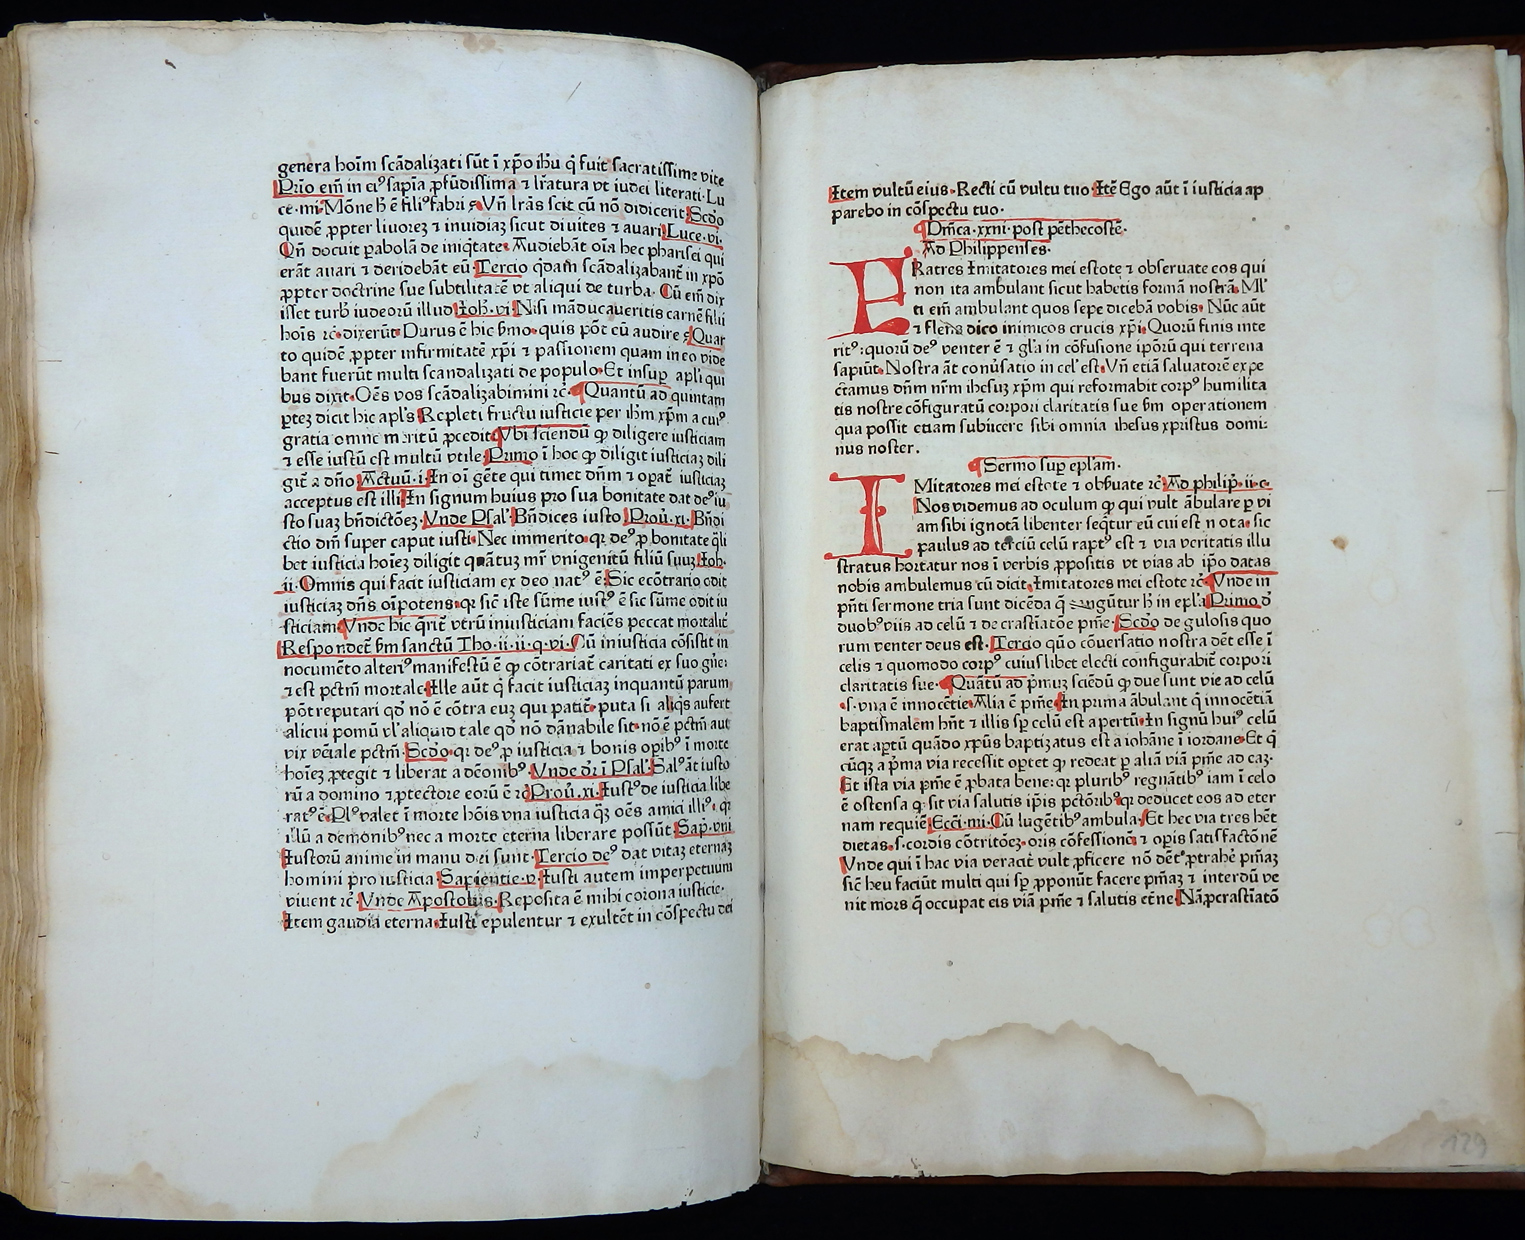 genera hoīm scādalizati sūt ī xp̄o ih̄u q̄ fuit sacratissime vite
Prīo em̄ in eiꝰ sapīa ꝓfūdissima ⁊ lr̄atura vt iudei literati·Lu
ce·iiii·Mōne h̄ ē filiꝰ fabri ⁊·Vn̄ lrās scit cū nō didicerit·Scd̄o
quidē ꝓpter liuorez ⁊ inuidiaz sicut diuites ⁊ auari·Luce·vi·
Qn̄ docuit ꝑabolā de iniq̄tate·Audiebāt oīa hec pharisei qui
erāt auari ⁊ deridebāt eū·Tercio q̄dam scādalizabant̄ in xp̄o
ꝓpter doctrine sue subtilitatē vt aliqui de turba·Cū em̄ dix
isset turb̄ iudeorū illud Ioh̄·vi·Nisi māducaueritis carnē filii
hoīs ⁊c̄·dixerūt·Durus ē hic s̄mo·quis pōt cū audire ⁊·Quar
to quidē ꝓpter infirmitatē xp̄i ⁊ passionem quam in eo vide
bant fuerūt multi scandalizati de populo·Et insuꝑ apl̄i qui
bus dixit·Oēs vos scādalizabimini ⁊c̄·Quantū ad quintam
ꝑtez dicit hic apl̄s Repleti fructu iusticie per ih̄m xp̄m a cuiꝰ
gratia omne meritū ꝓcedit·Vbi sciendū ꝙ diligere iusticiam
⁊ esse iustū est multū vtile·Primo ī hoc ꝙ diligit iusticiaz dili
git̄ a dn̄o Actuū·i·In oī gēte qui timet dn̄m ⁊ opat̄ iusticiaz
acceptus est illi·In signum huius pro sua bonitate dat deꝰ iu
sto suaz bn̄dictōez·Vnde Psal̄·Bn̄dices iusto Proū·xi·Bn̄di
ctio dn̄i super caput iusti·Nec immerito·qr deꝰ ꝓ bonitate q̄li
bet iusticia hoīez diligit quātuz mr̄ vnigenitū filiū suuz Ioh̄·
ii·Omnis qui facit iusticiam ex deo natꝰ ē·Sic ecōtrario odit
iusticiaz dn̄s oīpotens·qr sic̄ iste sūme iustꝰ ē sic sūme odit iu
sticiam·Vnde hic q̄rit̄ vtrū iniusticiam faciēs peccat mortalit̄
Respondet̄ s̄m sanctū Tho·ii·ii·q·vi·Cū iniusticia cōsistit in
nocumēto alteriꝰ manifestū ē ꝙ cōtrariat̄ caritati ex suo gn̄e:
⁊ est pctm̄ mortale·Ille aūt q̄ facit iusticiaz inquantū parum
pōt reputari qd̄ nō ē cōtra euz qui patit̄·puta si aliq̄s aufert
alicui pomū vl̓ aliquid tale qd̄ nō dānabile sit·nō ē pctm̄ aut
vix vēiale pctm̄·Scd̄o·qr deꝰ ꝓ iusticia ⁊ bonis opib̄ꝰ ī morte
hoīez ꝓtegit ⁊ liberat a dēonib̄ꝰ·Vnde dr̄ ī Psal̄·Salꝰ āt iusto
rū a domino ⁊ ꝓtectore eorū ē ⁊c̄·Proū·xi·Iustꝰ de iusticia libe
ratꝰ ē·Plꝰ valet ī morte hōis vna iusticia q̄z oēs amici illiꝰ·qr
illū a demonib̄ꝰ nec a morte eterna liberare possūt·Sap̄·viii
Iustorū anime in manu dei sunt·Tercio deꝰ dat vitaz eternaz
homini pro iusticia·Sapientie·v·Iusti autem imperpetuum
viuent ⁊c̄·Vnde Apostolus·Reposita ē mihi corona iusticie·
Item gaudia eterna·Iusti epulentur ⁊ exultēt in cōspectu dei
Item vultū eius·Recti cū vultu tuo·Itē Ego aūt ī iusticia ap
parebo in cōspectu tuo·
Dn̄ica·xxiii·post pēthecostē·
Ad Philippenses·
FRatres Imitatores mei estote ⁊ obseruate eos qui
non ita ambulant sicut habetis formā nostrā·Ml̓
ti em̄ ambulant quos sepe dicebā vobis·Nūc aūt
⁊ flens dico inimicos crucis xp̄i·Quorū finis inte
ritꝰ:quorū deꝰ venter ē ⁊ gl̄a in cōfusione ip̄orū qui terrena
sapiūt·Nostra āt conūsatio in cel̓ est·Vn̄ etiā saluatorē expe
ctamus dn̄m nr̄m ihesuz xp̄m qui reformabit corpꝰ humilita
tis nostre cōfiguratū corpori claritatis sue s̄m operationem
qua possit etiam subiicere sibi omnia ihesus xpristus domi:
nus noster.
Sermo suꝑ epl̄am·
IMitatores mei estote ⁊ obs̄uate ⁊c̄·Ad philip̄·ii·c·
Nos videmus ad oculum ꝙ qui vult ābulare ꝑ vi
am sibi ignotā libenter seq̄tur eū cui est nota·sic
paulus ad terciū celū raptꝰ est ⁊ via veritatis illu
stratus hortatur nos ī verbis ꝓpositis vt vias ab ip̄o datas
nobis ambulemus cū dicit·Imitatores mei estote ⁊c̄·Vnde in
pn̄ti sermone tria sunt dicēda q̄ tangūtur h̄ in epl̄a Primo d̄
duob̄ꝰ viis ad celū ⁊ de crastiatōe pn̄ie·Scd̄o de gulosis quo
rum venter deus est·Tercio quō cōuersatio nostra dēt esse ī
celis ⁊ quomodo corpꝰ cuiuslibet electi configurabit̄ corpori
claritatis sue·Quātū ad p̄muz sciēdū ꝙ due sunt vie ad celū
·s·vna ē innocētie·Alia ē pn̄ie·In prima ābulant q̄ innocētiā
baptismalem hn̄t ⁊ illis sꝑ celū est apertū·In signū huiꝰ celū
erat aꝑtū quādo xp̄us baptizatus est a iohāne ī iordane·Et q̄
cūqz a p̄ma via recessit oꝑtet ꝙ redeat ꝑ aliā viā pn̄ie ad eaz·
Et ista via pn̄ie ē ꝓbata bene:qr pluribꝰ regnātib̄ꝰ iam ī celo
ē ostensa ꝙ sit via salutis ip̄is pctōrib̄ꝰ qr deducet eos ad eter
nam requiē·Ecc̄i·iiii·Cū lugētib̄ꝰ ambula·Et hec via tres hēt
dietas·s·cordis cōtritōez·oris cōfessionē ⁊ oꝑis satisfactōnē
Vnde qui ī hac via veracit̄ vult ꝓficere nō dēt ꝓtrahē pn̄iaz
sic̄ heu faciūt multi qui sꝑ ꝓponūt facere pn̄iaz ⁊ interdū ve
nit mors q̄ occupat eis viā pn̄ie ⁊ salutis et̄ne·Nā ꝓcrastiatō
129